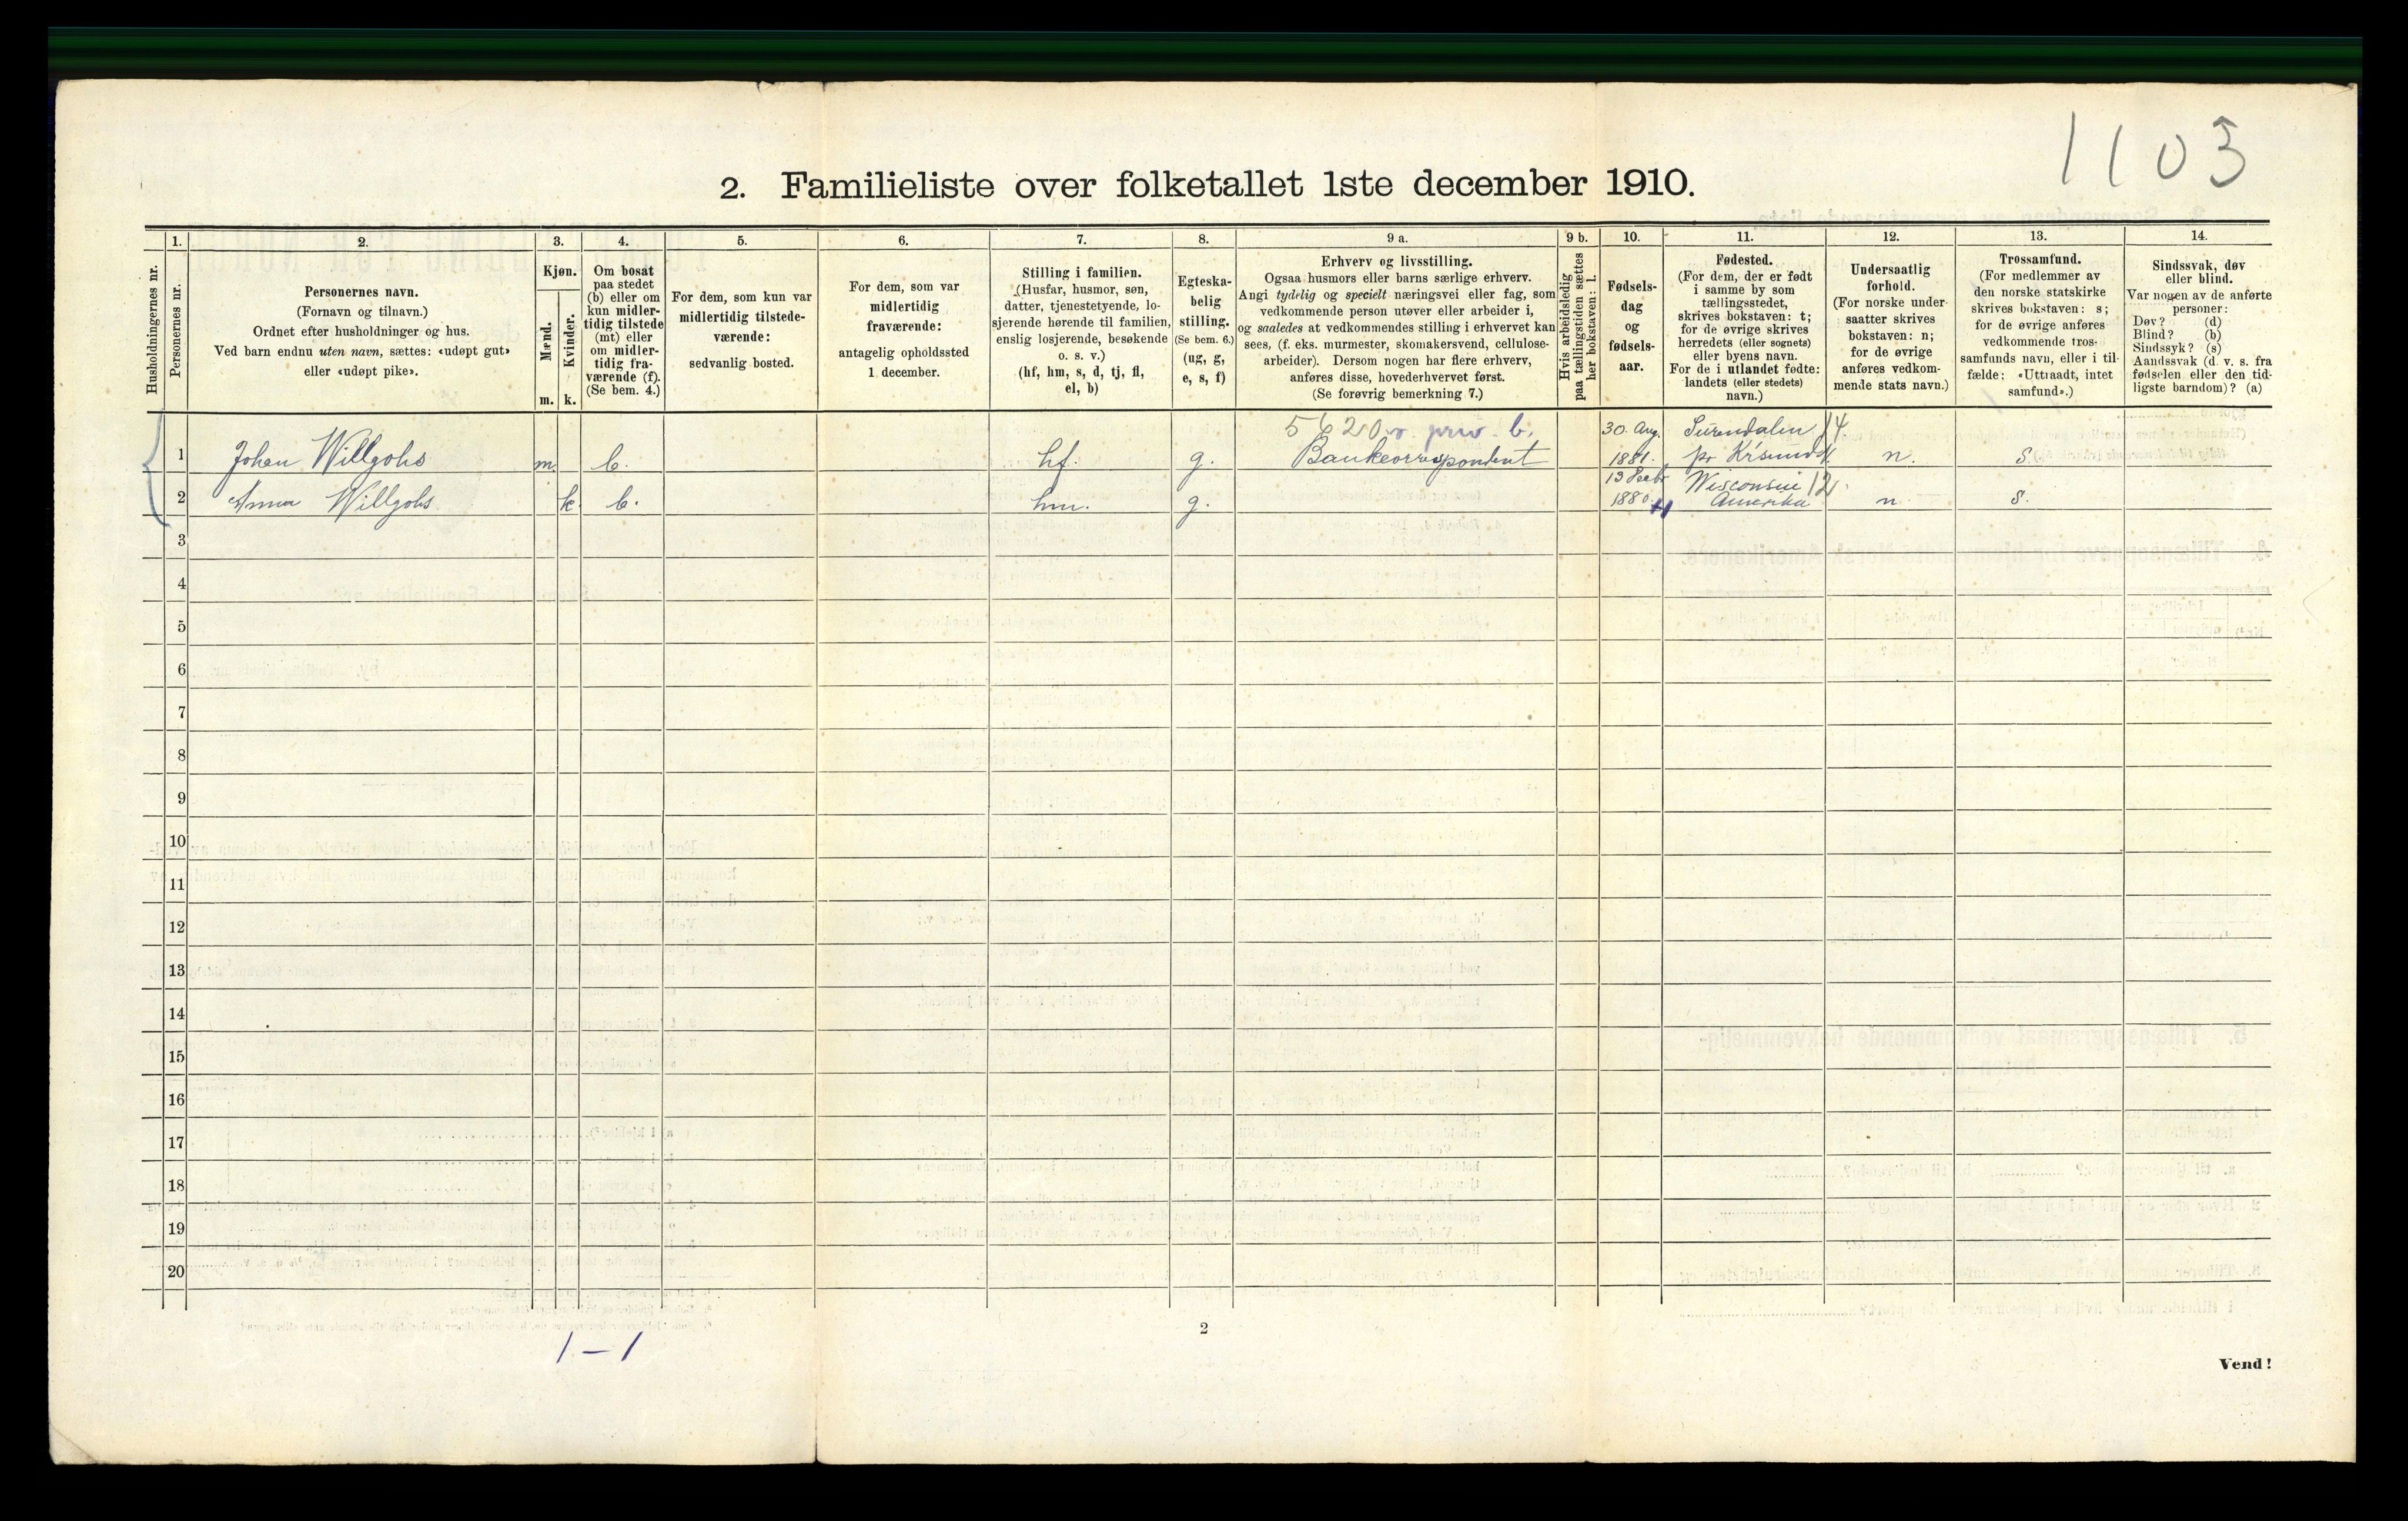 1103
2. Familieliste over folketallet 1ste december 1910.
1. 2. 3. 4. 5. 6. 7. 8. 9 a. 9 b. 10. 11. 12. 13. 14.
Husholdningernes nr.
Personernes nr.
Personernes navn.
(Fornavn og tilnavn.)
Ordnet efter husholdninger og hus.
Ved barn endnu uten navn, sættes: «udøpt gut»
eller «udøpt pike».
Kjøn.
Mænd.
Kvinder.
m. k.
Om bosat
paa stedet
(b) eller om
kun midler-
tidig tilstede
(mt) eller
om midler-
tidig fra-
værende (f).
(Se bem. 4.)
For dem, som kun var
midlertidig tilstede-
værende:
sedvanlig bosted.
For dem, som var
midlertidig
fraværende:
antagelig opholdssted
1 december.
Stilling i familien.
(Husfar, husmor, søn,
datter, tjenestetyende, lo-
sjerende hørende til familien,
enslig losjerende, besøkende
o. s. v.)
(hf, hm, s, d, tj, fl,
el, b)
Egteska-
belig
stilling.
(Se bem. 6.)
(ug, g,
e, s, f)
Erhverv og livsstilling.
Ogsaa husmors eller barns særlige erhverv.
Angi tydelig og specielt næringsvei eller fag, som
vedkommende person utøver eller arbeider i,
og saaledes at vedkommendes stilling i erhvervet kan
sees, (f. eks. murmester, skomakersvend, cellulose-
arbeider). Dersom nogen har flere erhverv,
anføres disse, hovederhvervet først.
(Se forøvrig bemerkning 7.)
Hvis arbeidsledig
paa tællingstiden sættes
her bokstaven: l.
Fødsels-
dag
og
fødsels-
aar.
Fødested.
(For dem, der er født
i samme by som
tællingsstedet,
skrives bokstaven: t;
for de øvrige skrives
herredets (eller sognets)
eller byens navn.
For de i utlandet fødte:
landets (eller stedets)
navn.)
Undersaatlig
forhold.
(For norske under-
saatter skrives
bokstaven: n;
for de øvrige
anføres vedkom-
mende stats navn.)
Trossamfund.
(For medlemmer av
den norske statskirke
skrives bokstaven: s;
for de øvrige anføres
vedkommende tros-
samfunds navn, eller i til-
fælde: «Uttraadt, intet
samfund».)
Sindssvak, døv
eller blind.
Var nogen av de anførte
personer:
Døv? (d)
Blind? (b)
Sindssyk? (s)
Aandssvak (d. v. s. fra
fødselen eller den tid-
ligste barndom)? (a)
5620 priv. b. 30. Aug. Surendalen 14
1 Johan Willgohs m. b. hf. g. Bankcorrespondent 1881. pr Kr'sund n. s.
13 Wisconsin 12
2 Anna Willgohs k. b. hm. g. 1880 Amerika n. s.
3
4
5
6
7
8
9
10
11
12
13
14
15
16
17
18
19
20
1-1
2
Vend!